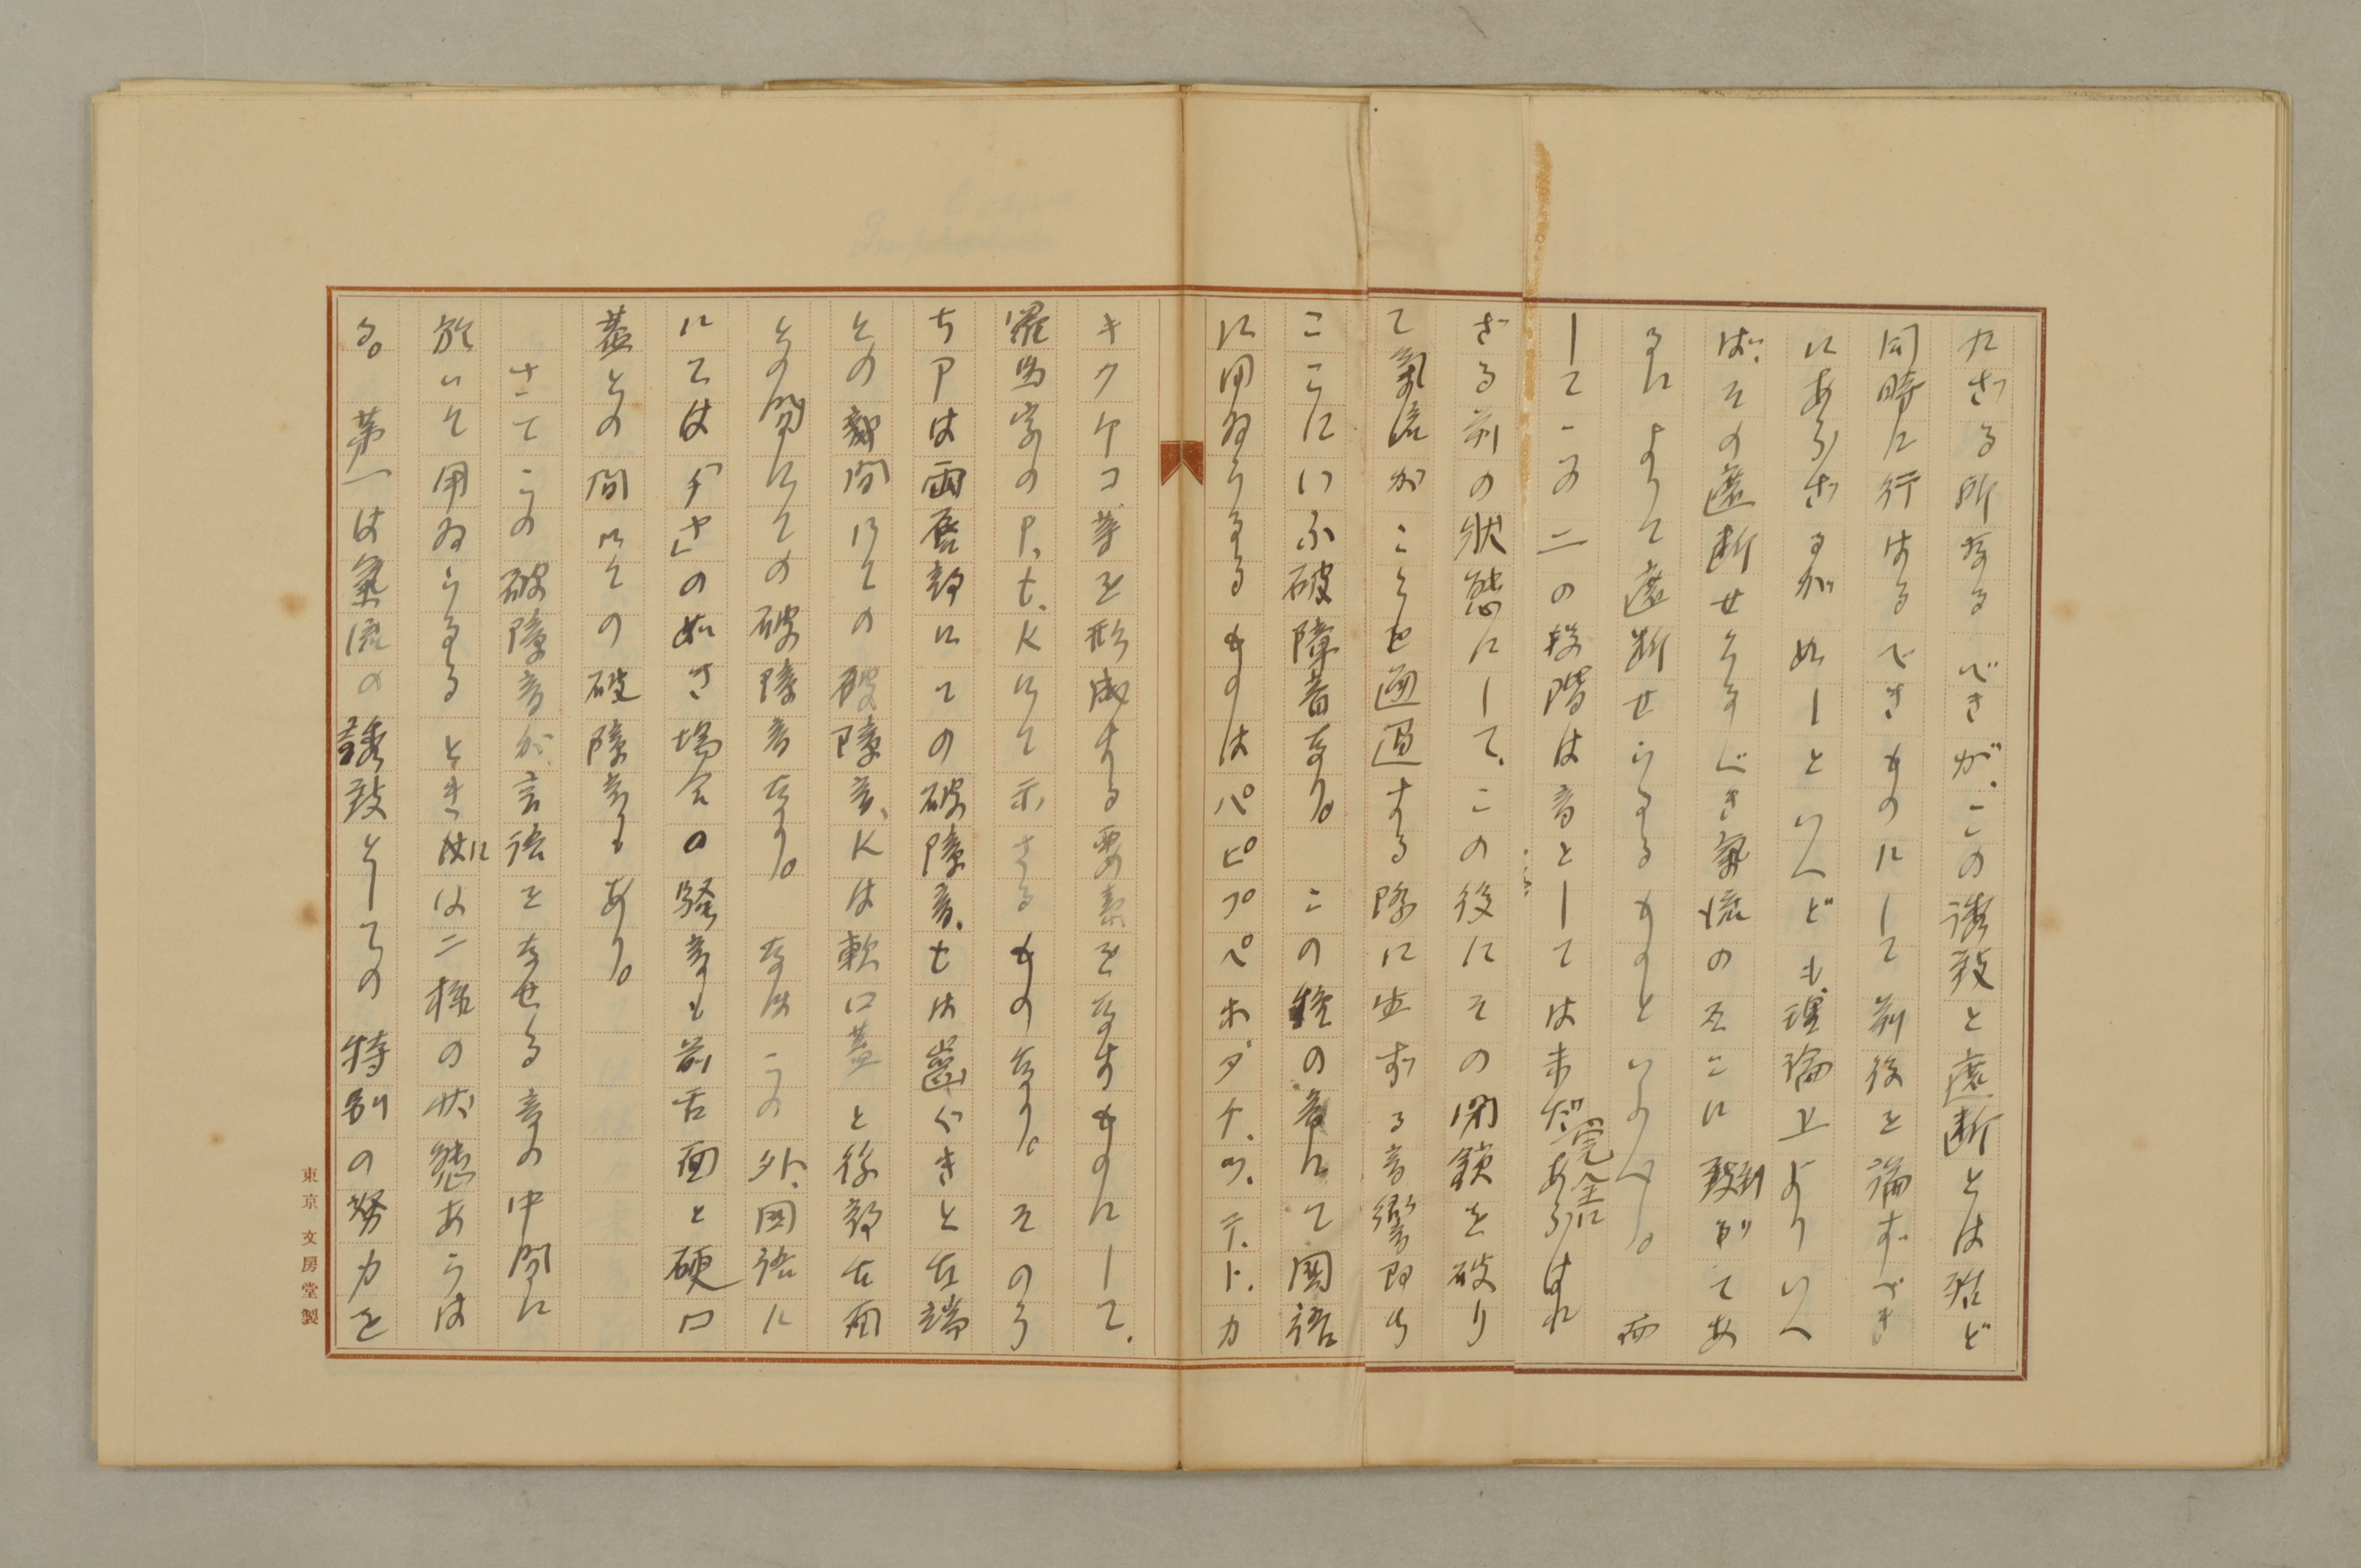 たざる所なるべきが、この誘致と遮断とは殆ど
同時に行はるべきものにして前後を論ずべき
にあらざるが如しといへども、理論上よりいへ
ば、その遮断せらるべき氣流のそこに到
るによりて遮断せらるるものといふべし。而
してこの二の段階は音としては未だ完全にあらはれ
ざる前の状態にして、この後にその閉鎖を破り
て氣流がことを通過する際に生ずる音響即ち
ここにいふ破障音なり。この種の音にて國語
に用ゐらるるものはパピプペポ、タ、チ、ツ、テ、ト、カ
キクケコ等を形成する要素をなすものにして、
羅馬字のP、t、Kにて示さるるものなり。そのう
ちPは両唇部にての破障音、tは齒ぐきと舌端
との部間にての破障音、Kは軟口蓋と後部舌面
との間にての破障音なり。なほこの外、國語に
ては「チ」の如き場合の發音も前舌面と硬口
蓋との間にての破障音もあり。
さてこの破障音が言語をなせる音の中間に
於いて用ゐらるるときには二様の状態あらは
る。第一は氣流の誘致としての特別の努力を
東京 文房堂製